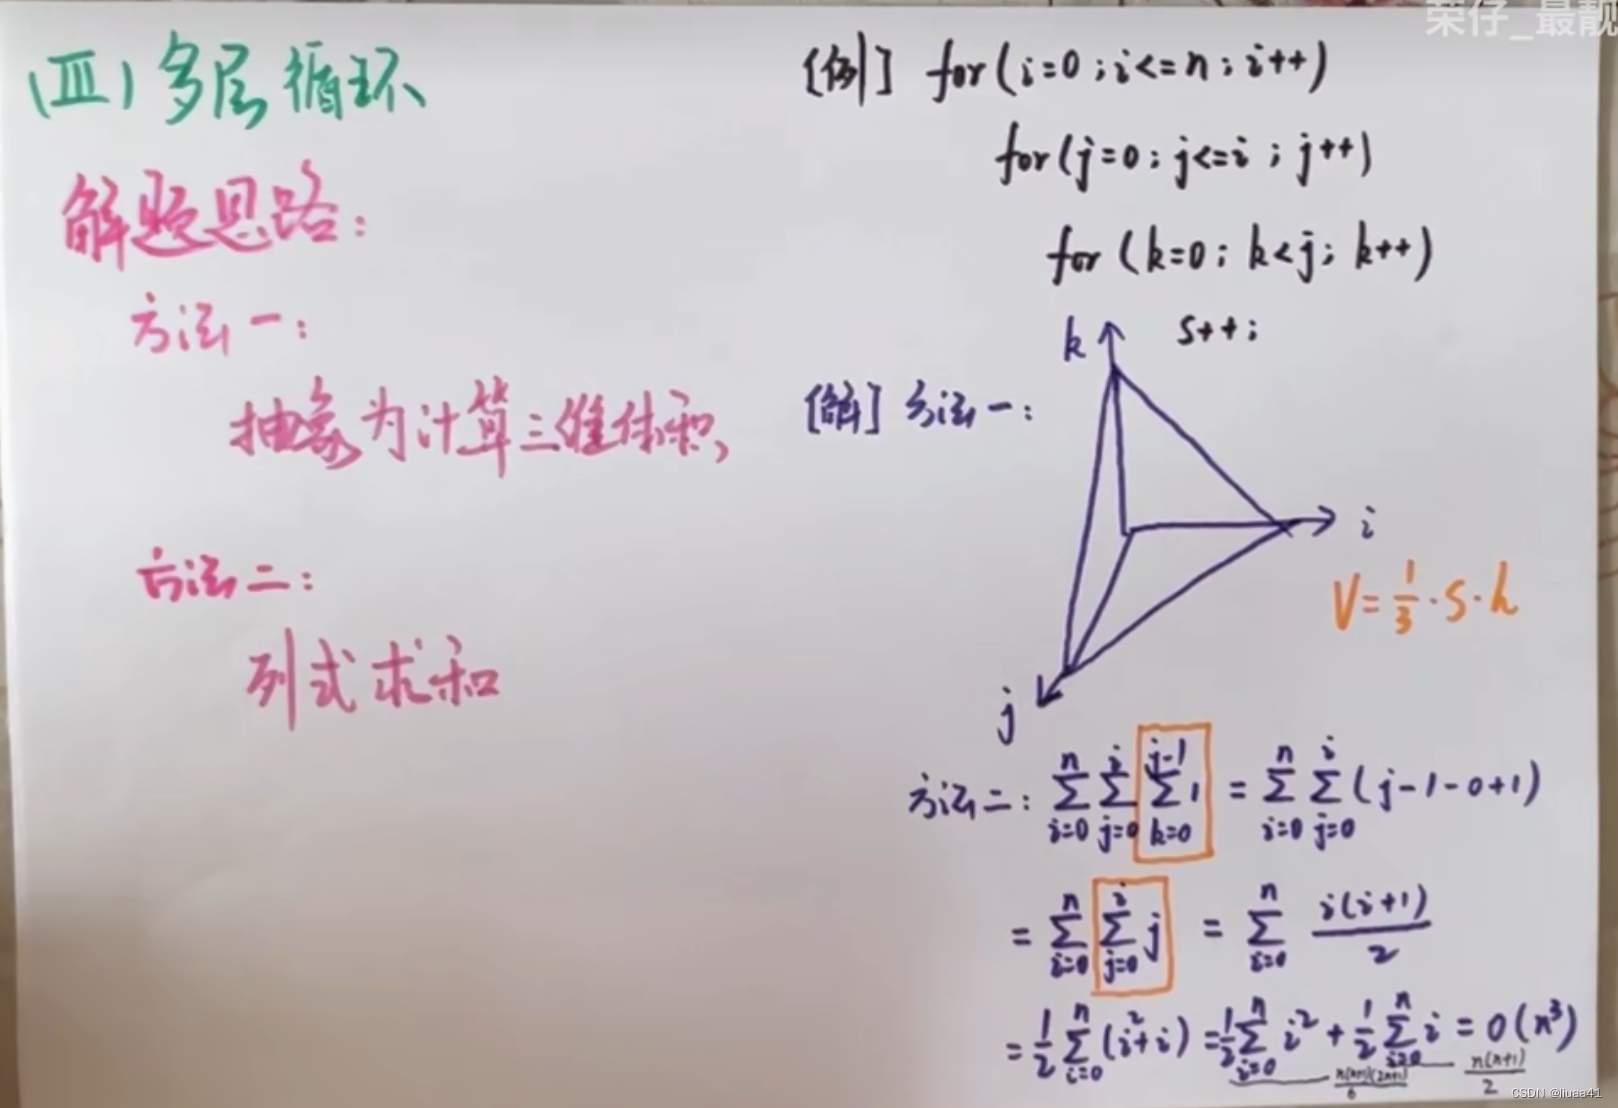 荣仔_最靓
(III) 多层循环
解题思路:
方法一:
抽象为计算三维体积
方法二:
列式求和
[例] for(i=0;i<=n;i++)
for(j=0;j<=i;j++)
for(k=0;k<j;k++)
s++;
[解] 方法一:
k
i
j
V=1/3·S·h
方法二: ∑_{i=0}^{n} ∑_{j=0}^{i} ∑_{k=0}^{j-1} 1 = ∑_{i=0}^{n} ∑_{j=0}^{i} (j-1-0+1)
= ∑_{i=0}^{n} ∑_{j=0}^{i} j = ∑_{i=0}^{n} i(i+1)/2
= 1/2 ∑_{i=0}^{n} (i²+i) = 1/2 ∑_{i=0}^{n} i² + 1/2 ∑_{i=0}^{n} i = O(n³)
n(n+1)(2n+1)/6 n(n+1)/2
CSDN @liuaa41